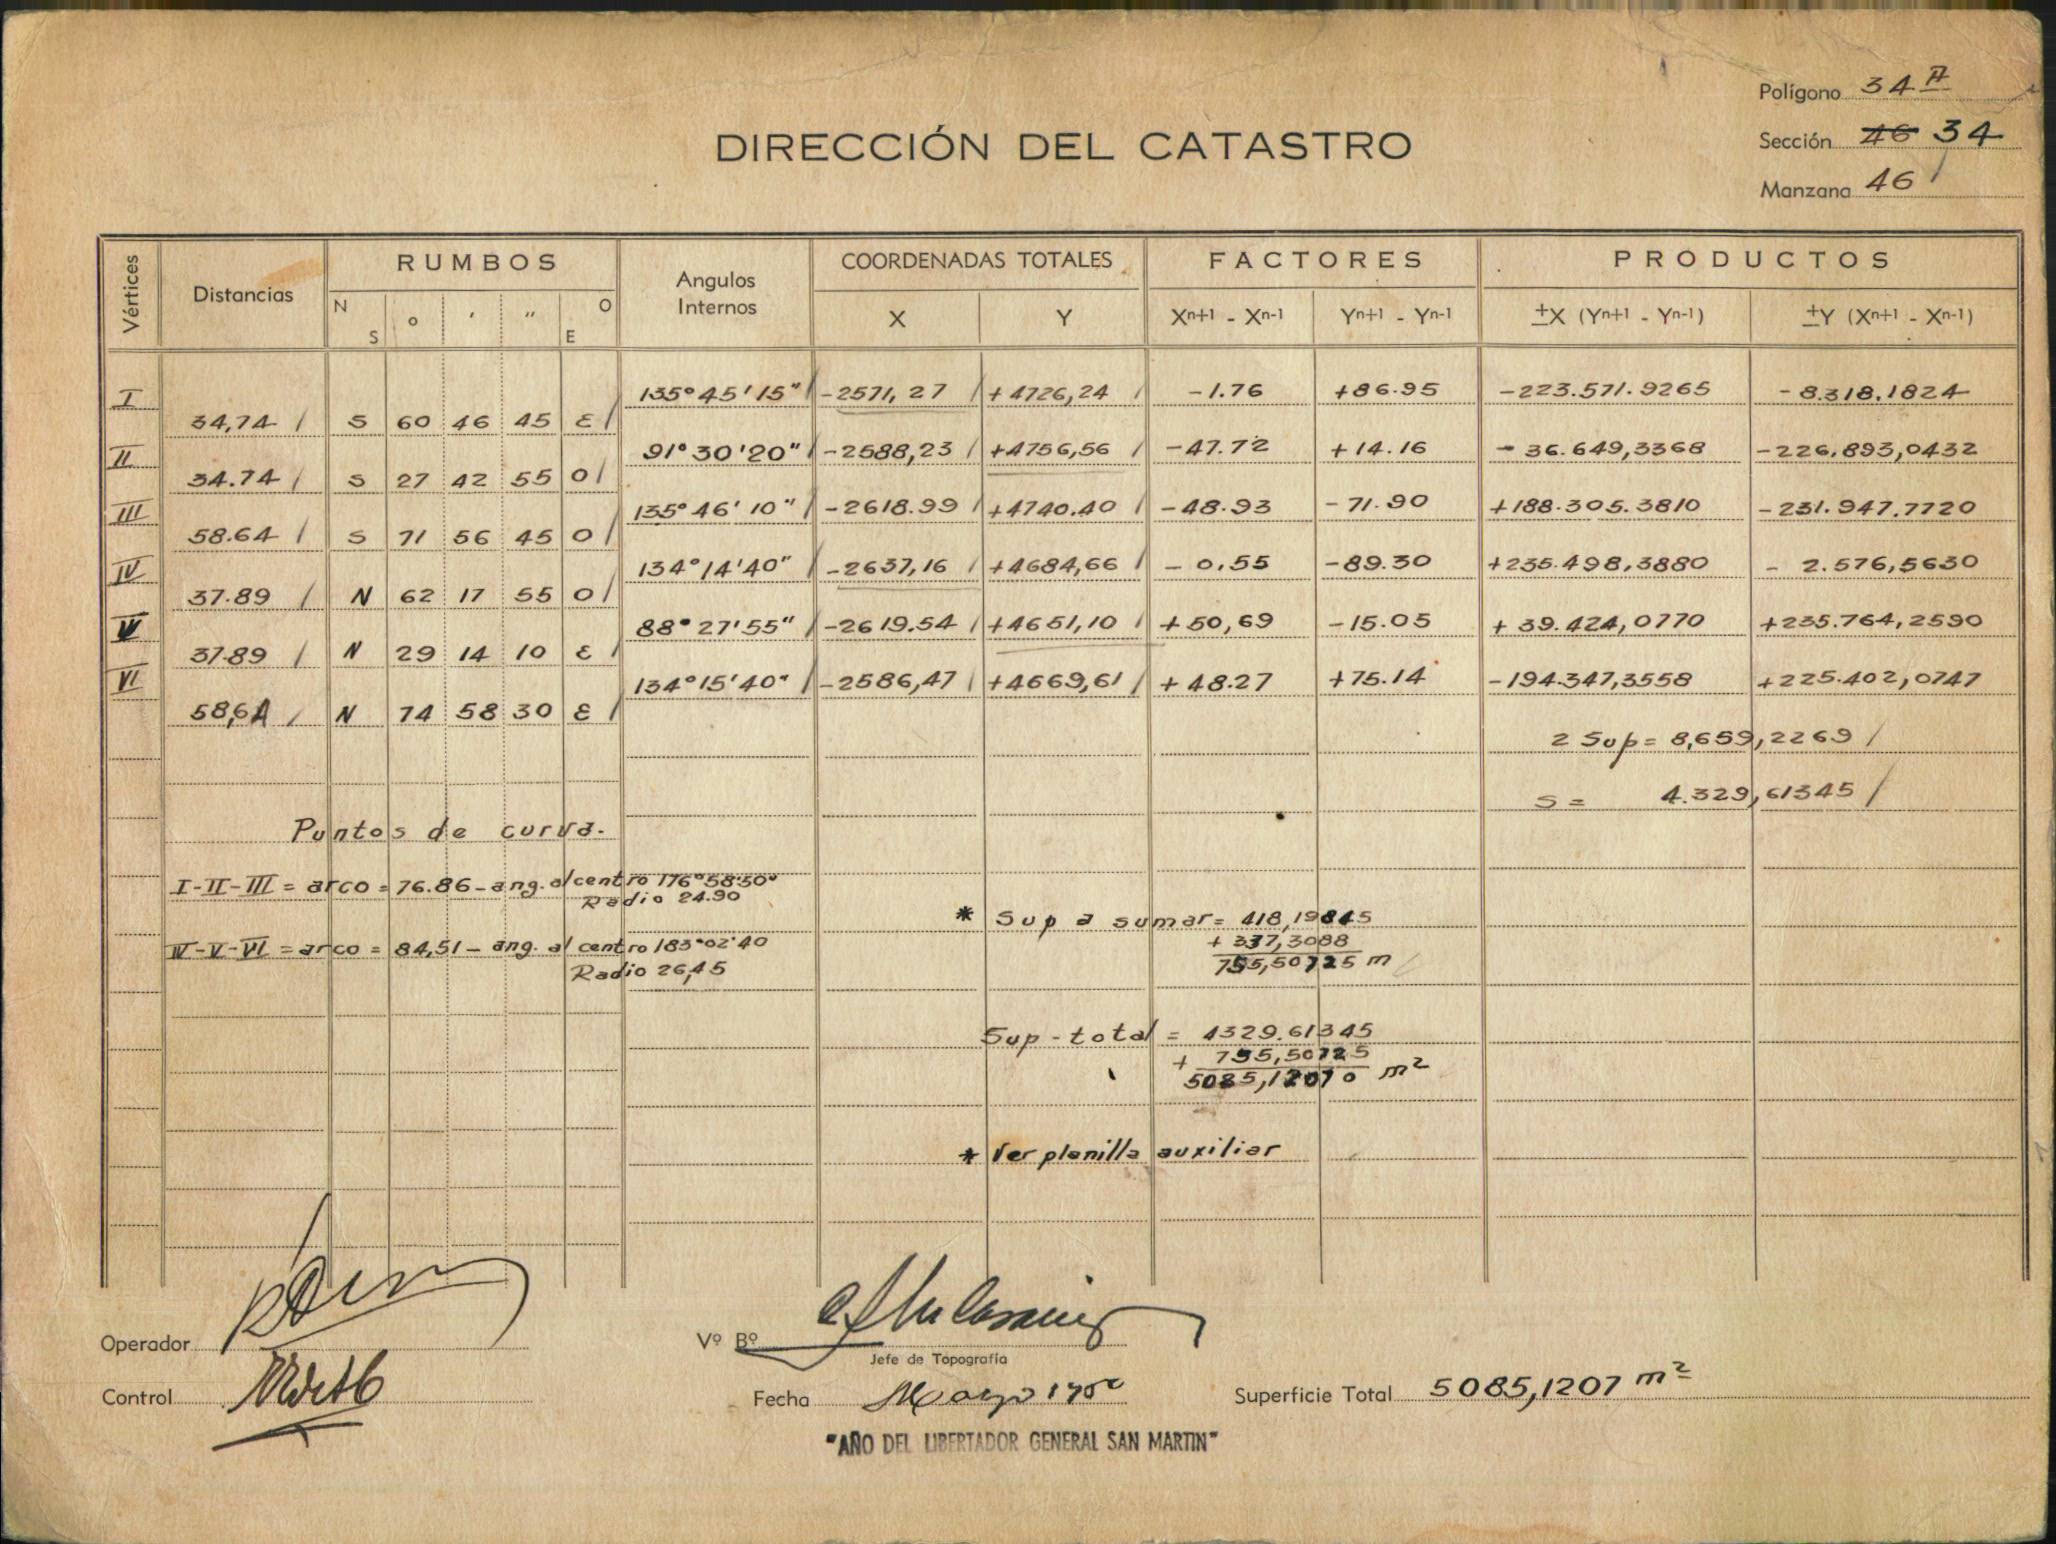 Polígono 34 A
DIRECCIÓN DEL CATASTRO
Sección 46 34
Manzana 46
Vértices Distancias RUMBOS Angulos Internos COORDENADAS TOTALES FACTORES PRODUCTOS
N S o ' " O E X Y Xn+1 - Xn-1 Yn+1 - Yn-1 ±X (Yn+1 - Yn-1) ±Y (Xn+1 - Xn-1)
I 135° 45' 15" -2571,27 +4726,24 -1.76 +86.95 -223.571.9265 -8.318.1824
34,74 S 60 46 45 E
II 91° 30' 20" -2588,23 +4756,56 -47.72 +14.16 -36.649,3368 -226.893,0432
34.74 S 27 42 55 O
III 135° 46' 10" -2618.99 +4740.40 -48.93 -71.90 +188.305.3810 -231.947.7720
58.64 S 71 56 45 O
IV 134° 14' 40" -2637,16 +4684,66 -0.55 -89.30 +235.498,3880 -2.576,5630
37.89 N 62 17 55 O
V 88° 27' 55" -2619.54 +4651,10 +50,69 -15.05 +39.424,0770 +235.764,2590
37.89 N 29 14 10 E
VI 134° 15' 40" -2586,47 +4669,61 +48.27 +75.14 -194.347,3558 +225.402,0747
58,64 N 74 58 30 E
2 Sup = 8,659,2269
S = 4.329,61345
Puntos de curva.
I-II-III = arco = 76.86 - ang. al centro 176°58'50"
Radio 24.90
* Sup a sumar = 418,19845
+ 337,3088
755,50725 m
IV-V-VI = arco = 84,51 - ang. al centro 183°02'40
Radio 26,45
Sup-total = 4329.61345
+ 755,50725
5085,12070 m²
* Ver planilla auxiliar
Operador
Vº Bº
Jefe de Topografía
Control
Fecha Marzo 1950
Superficie Total 5085,1207 m²
"AÑO DEL LIBERTADOR GENERAL SAN MARTIN"